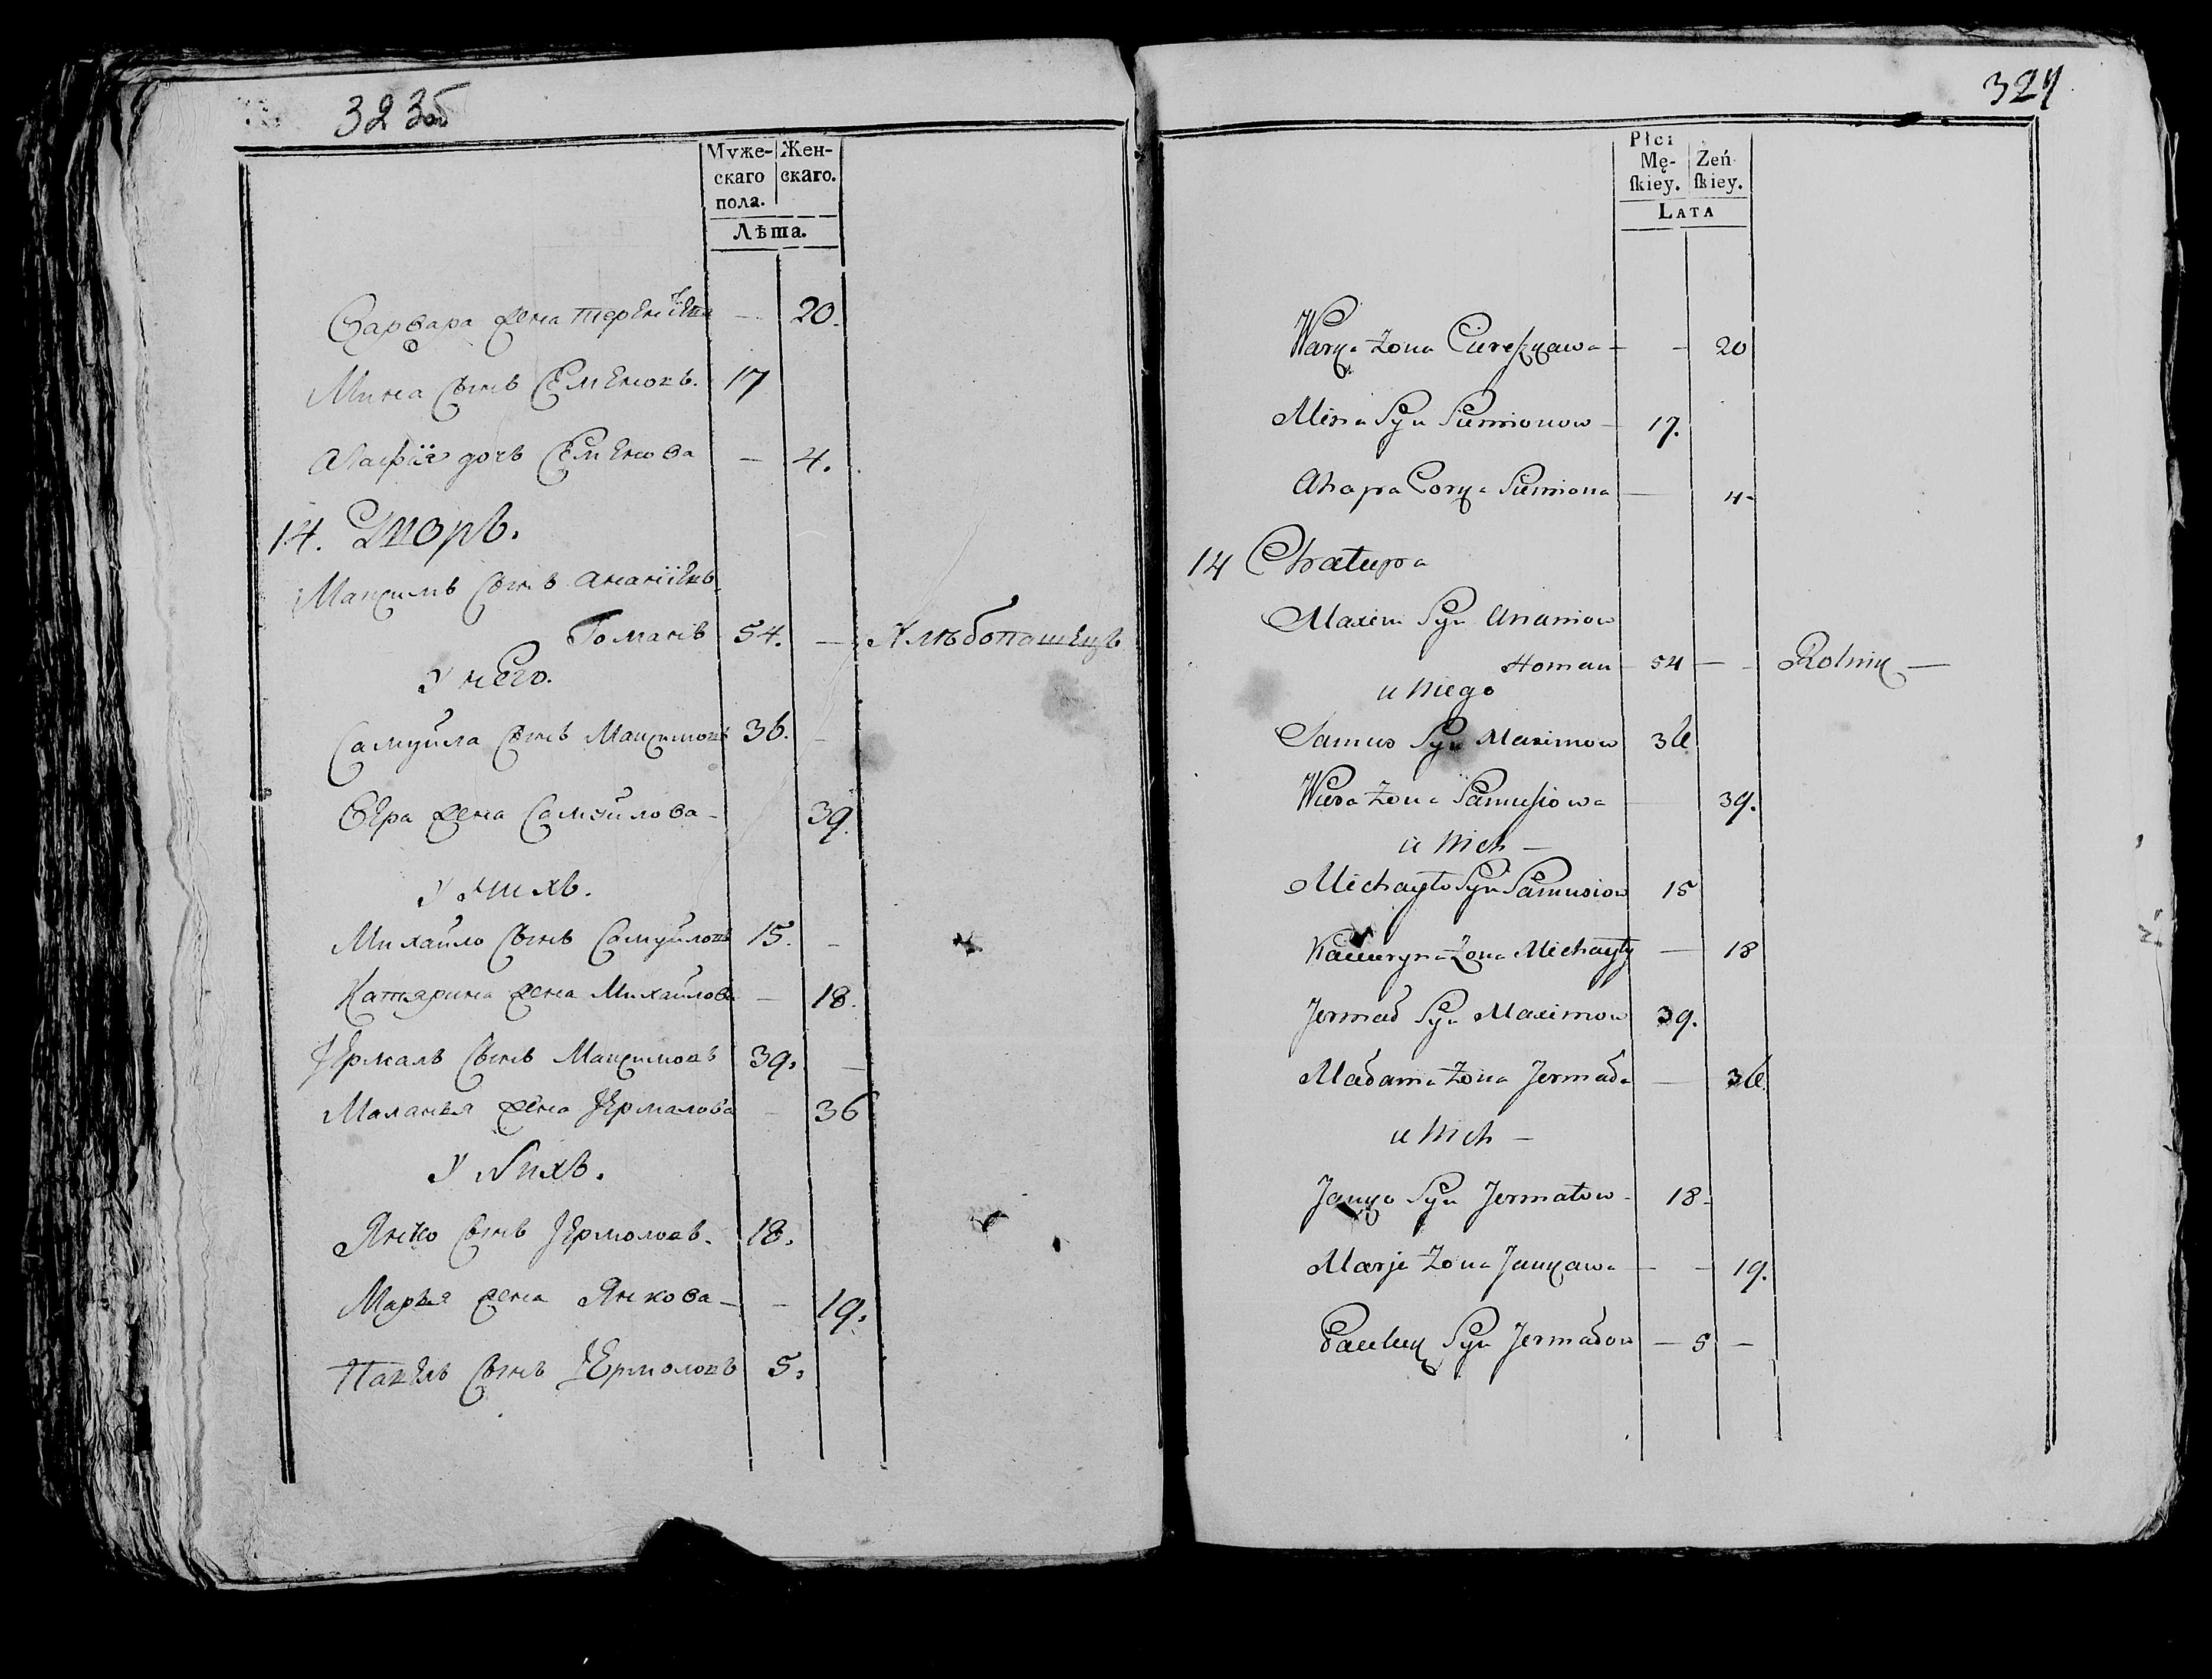 323об
Мужескаго пола. Женскаго.
Лѣта.
Варвара жена Терентiева — 20.
Мина сынъ Семеновъ. 17
Агафiя дочь Семенова — 4.
14. Дворъ.
Максимъ сынъ Ананiевъ
Гоманъ 54. — Хлѣбопашецъ
У него.
Самуйла сынъ Максимовъ 36. —
Вера жена Самуйлова — 39.
У нихъ.
Михайло сынъ Самуйловъ 15. —
Катярина жена Михайлова — 18.
Ермалъ сынъ Максимовъ 39. —
Маланья жена Ермалова — 36
У нихъ.
Янко сынъ Ермоловъ. 18.
Марья жена Янкова — — 19.
Павелъ сынъ Ермоловъ 5.
324
Płci
Mę-ſkiey. Zeń-ſkiey.
LATA
Warka Zona — — 20
Mina Syn Siemionow — 17.
Ahapa Corka Siemiona — 4-
14 Chatupa
Maxim Syn Ananiow
Homan 54 — — Rolnik —
u Niego
Samus Syn Maximow 36
Wiera Zona Samusiowa — 39.
u Nich —
Michayło Syn Samusiow 15
Kateryna Zona Michayły — 18
Jermał Syn Maximow 39.
Małania Zona Jermała — 36.
u Nich —
Janko Syn Jermałow - 18-
Marja Zona Jankawa — — 19.
Pauluk Syn Jermałow — 5 —